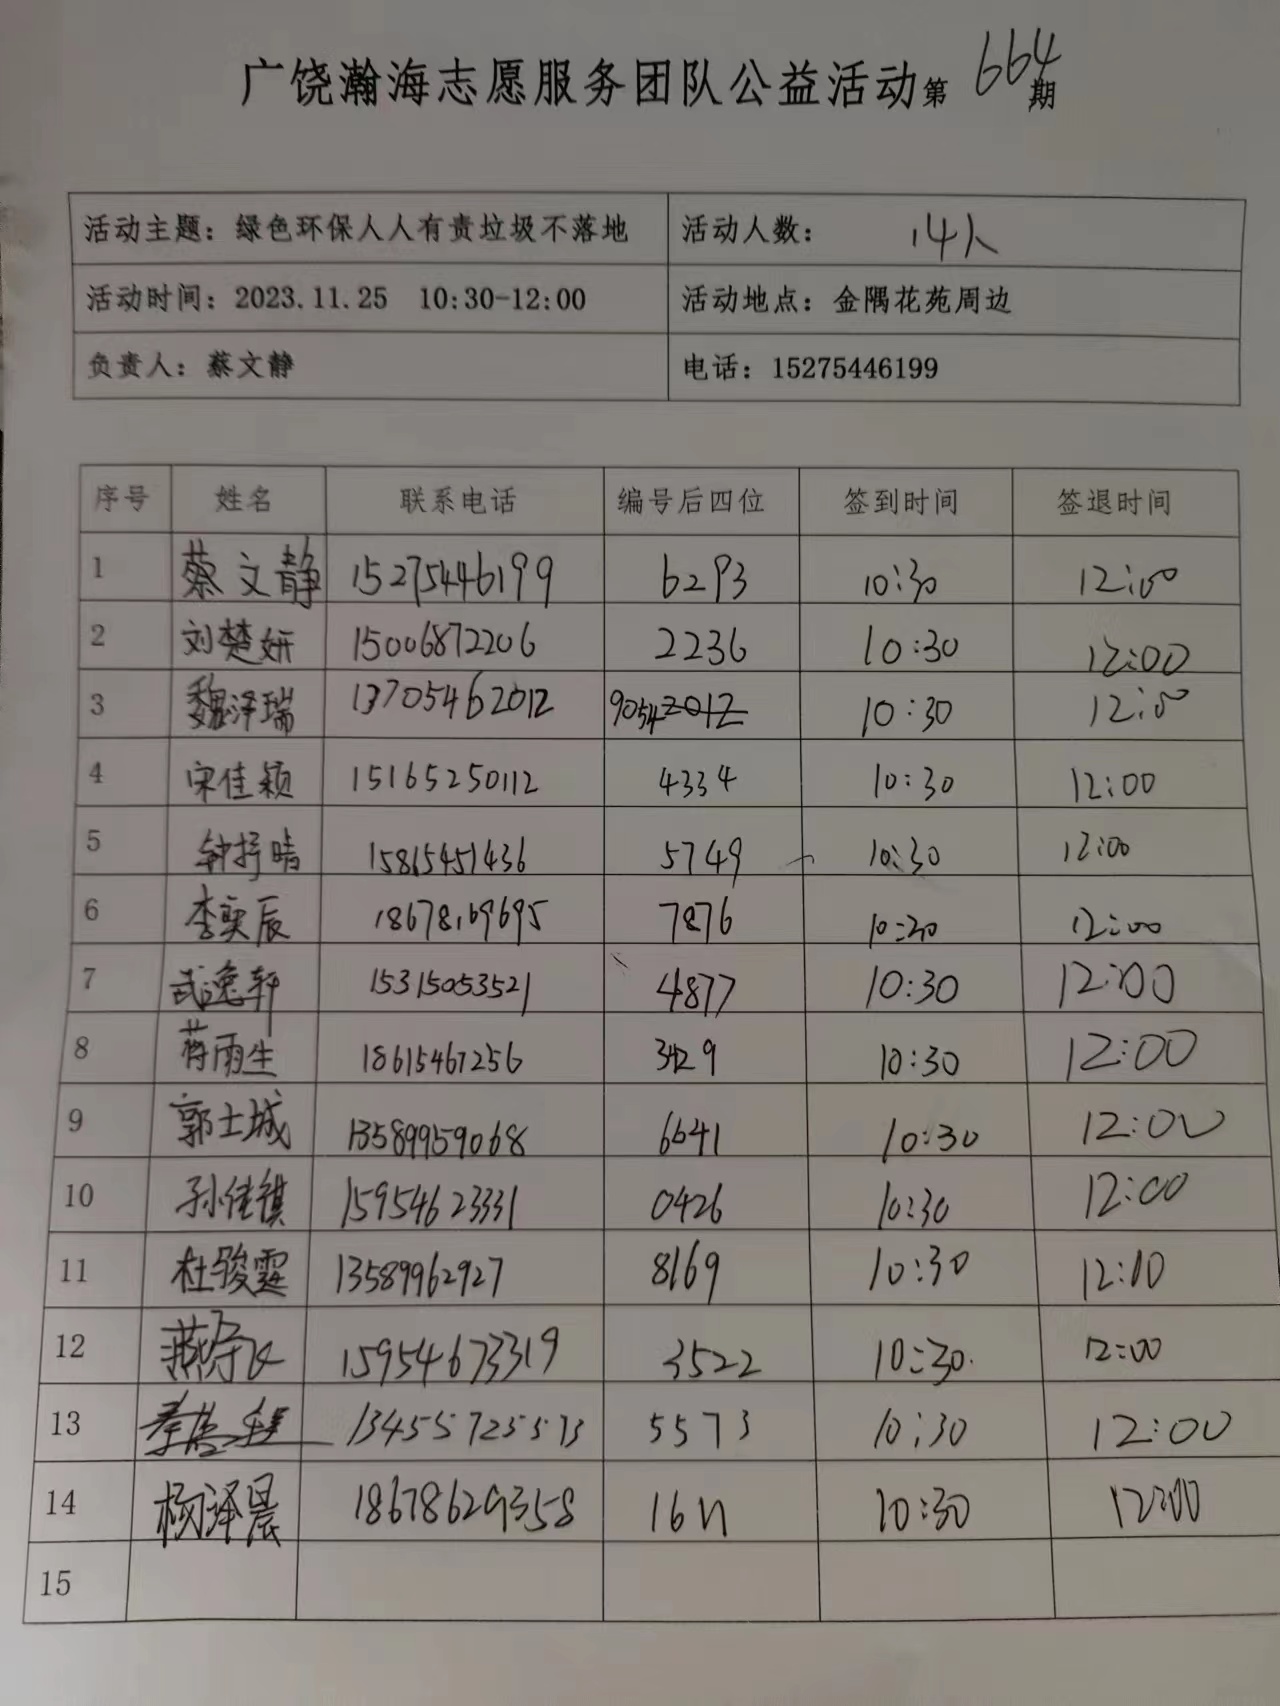 广饶瀚海志愿服务团队公益活动第664期
活动主题：绿色环保人人有责垃圾不落地 活动人数： 14人
活动时间：2023.11.25 10:30-12:00 活动地点：金隅花苑周边
负责人：蔡文静 电话：15275446199
序号 姓名 联系电话 编号后四位 签到时间 签退时间
1 蔡文静 15275446199 6293 10:30 12:00
2 刘楚妍 15006872206 2236 10:30 12:00
3 魏泽瑞 13705462012 9054 2012 10:30 12:00
4 宋佳颖 15165250112 4334 10:30 12:00
5 钟抒晴 15865451436 5749 10:30 12:00
6 李奕辰 18678169695 7876 10:30 12:00
7 武逸轩 15315053521 4877 10:30 12:00
8 蒋雨生 18615467256 3429 10:30 12:00
9 郭士城 13589959068 6641 10:30 12:00
10 孙佳祺 15954623331 0426 10:30 12:00
11 杜骏霆 13589962927 8169 10:30 12:00
12 15954673319 3522 10:30 12:00
13 13455725573 5573 10:30 12:00
14 杨泽晨 18678629358 10:30 12:00
15